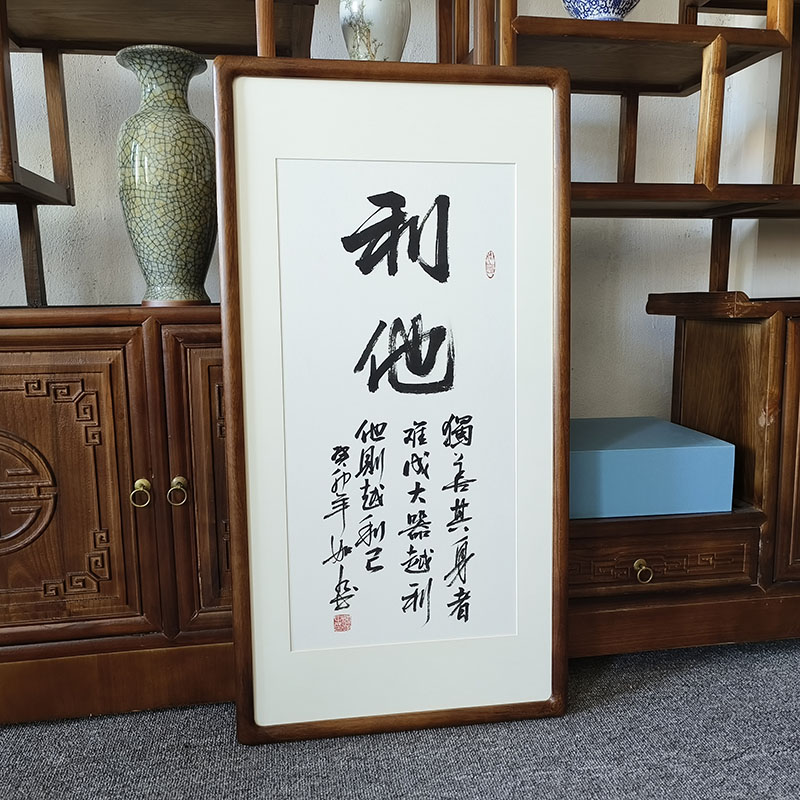 利他
獨善其身者
难成大器越利
他則越利己
癸卯年